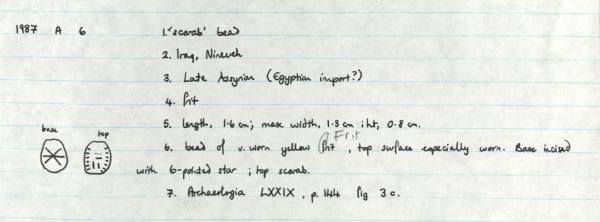 1987 A 6
1. 'scarab' bead
2. Iraq, Nineveh
3. Late Assyrian (Egyptian import?)
4. frit
5. length, 1.6 cm; max width, 1.3 cm; ht, 0.8 cm.
Frit
6. bead of v. worn yellow frit, top surface especially worn. Base incised
with 6-pointed star; top scarab.
7. Archaeologia LXXIX, p. 144 fig 3 c.
base
top